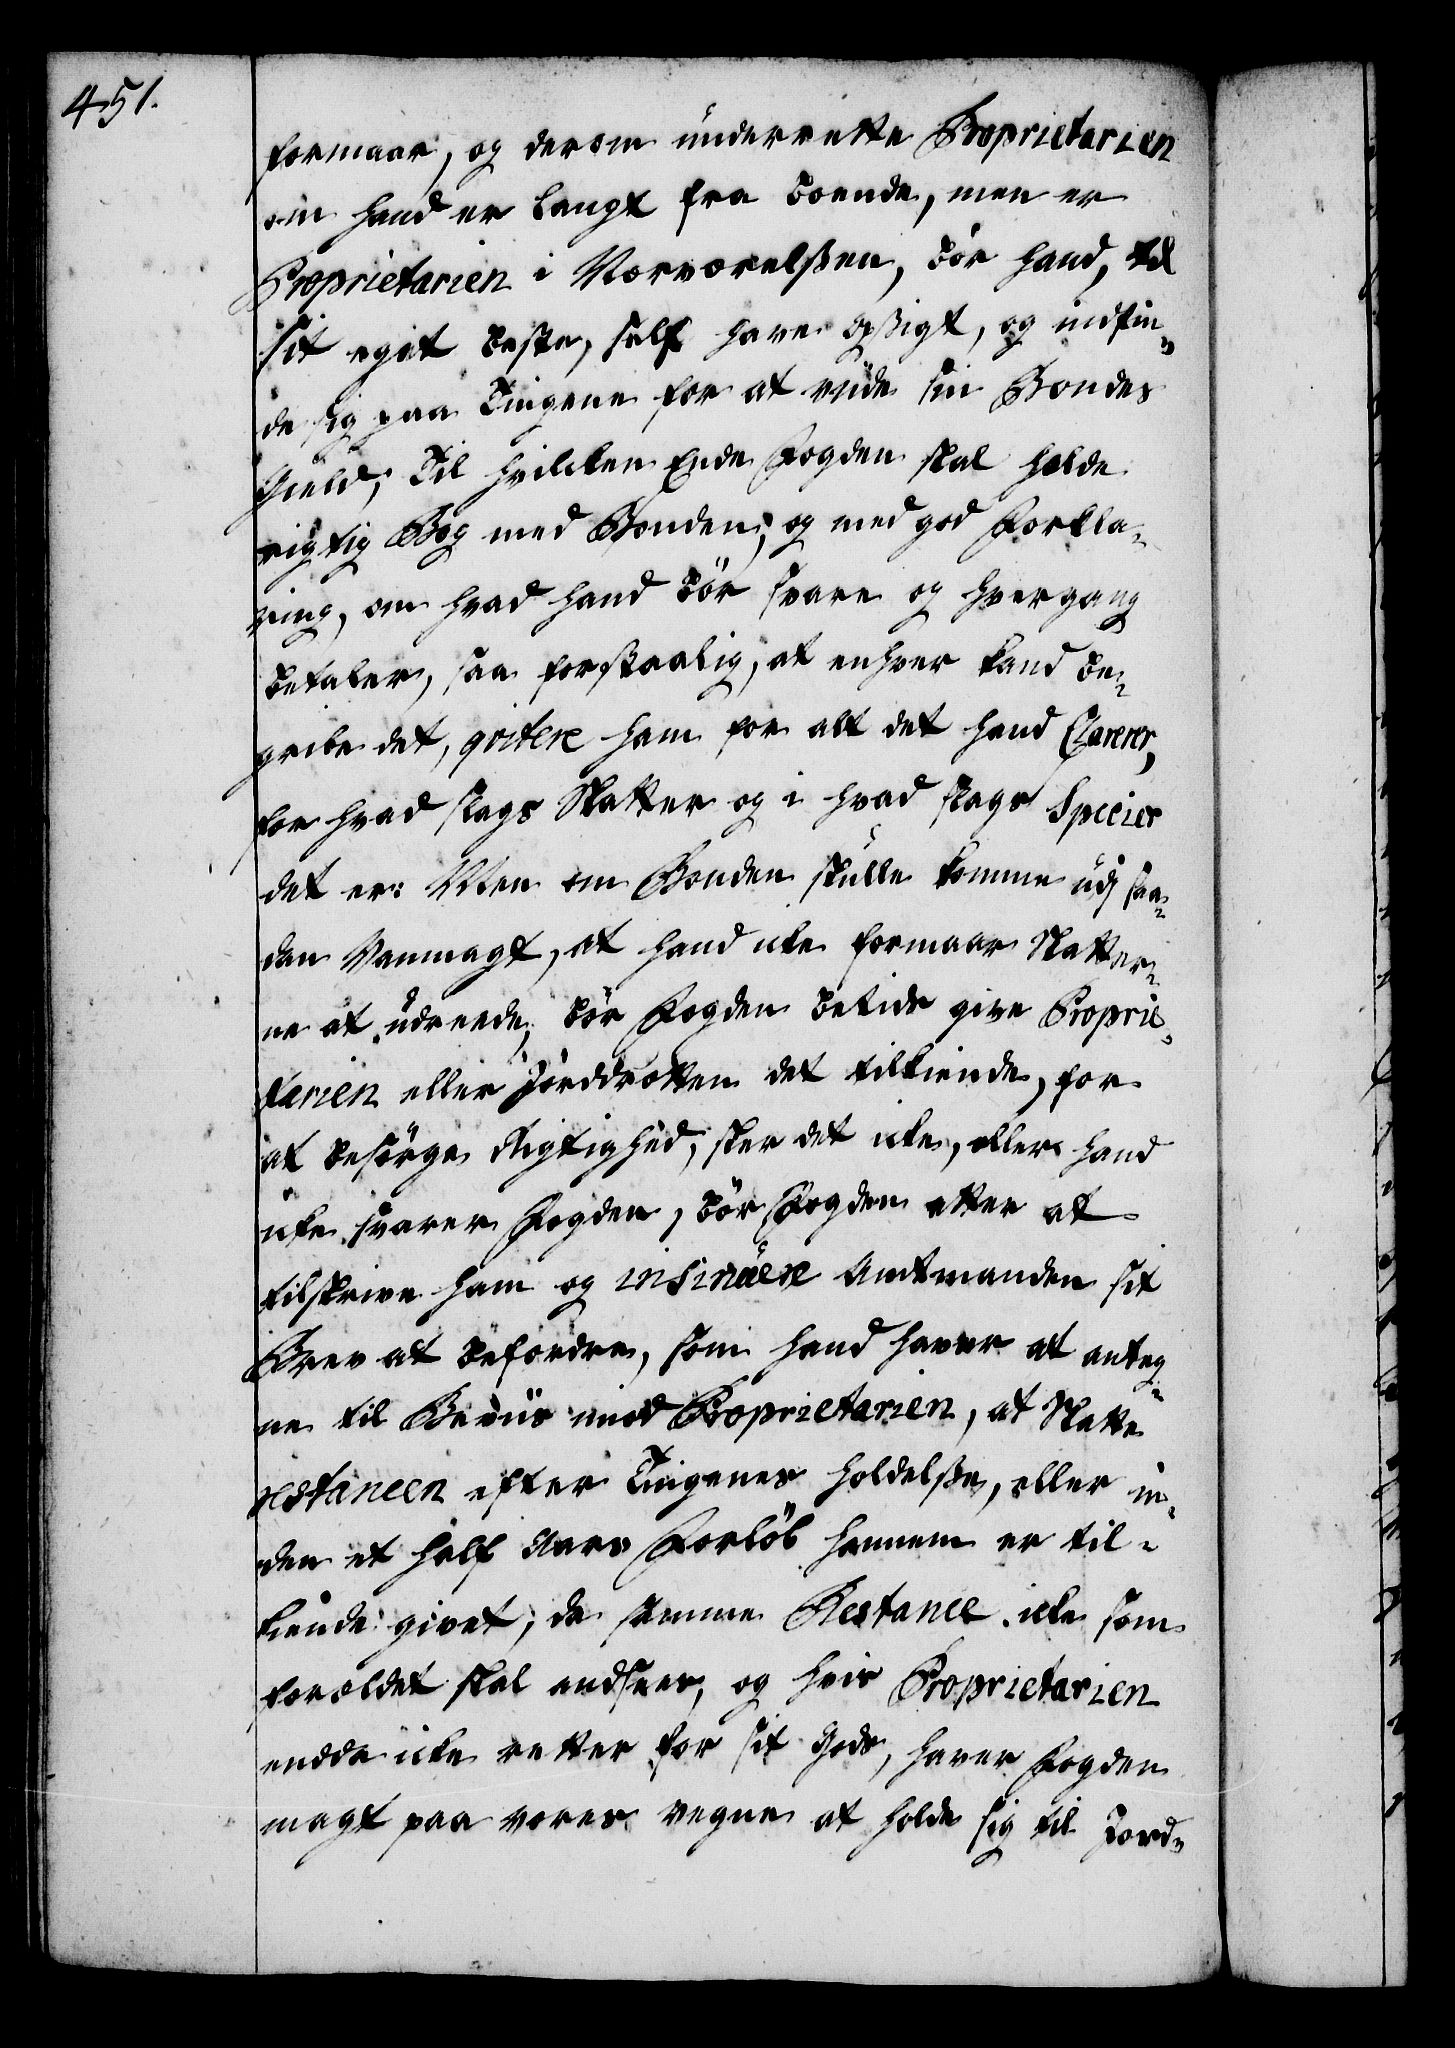 451.
formaar, og derom underrette Proprietarien
om hand er langt fra boende, men er
Proprietarien i Nærværelßen, bör hand, til
sit eget beste, self have opsigt, og indfin-
de sig paa Tingene for at vide sin Bondes
Gield; Til hvilcken Ende Fogden skal holde
rigtig Bog med Bonden, og med god Forkla-
ring, om hvad hand bör svare og hvergang
betaler, saa forstaalig, at enhver kand be-
gribe det, qvitere ham for alt det hand Clarerer,
for hvad slags Skatter og i hvad slags Specier
det er: Men om Bonden skulle komme udj saa-
dan Vanmagt, at hand icke formaar Skatter-
ne at udreede, bör Fogden betids give Proprie-
tarien eller Jorddrotten det tilkiende, for
at besörge Rigtighed, skeer det icke, eller hand
icke svarer Fogden, bör Fogden atter at
tilskrive ham og insinuere Amtmanden sit
Brev at befordre, som hand haver at anteg-
ne til Beviis mod Proprietarien, at Skatte
restancen efter Tingenes holdelße, eller in-
den et half Aars Forlöb hannem er til-
kiende givet, da samme Restance icke som
forældet skal andsees, og hvis Proprietarien
endda icke retter for sit Gods, haver Fogden
magt paa vores vegne at holde sig til Jord-